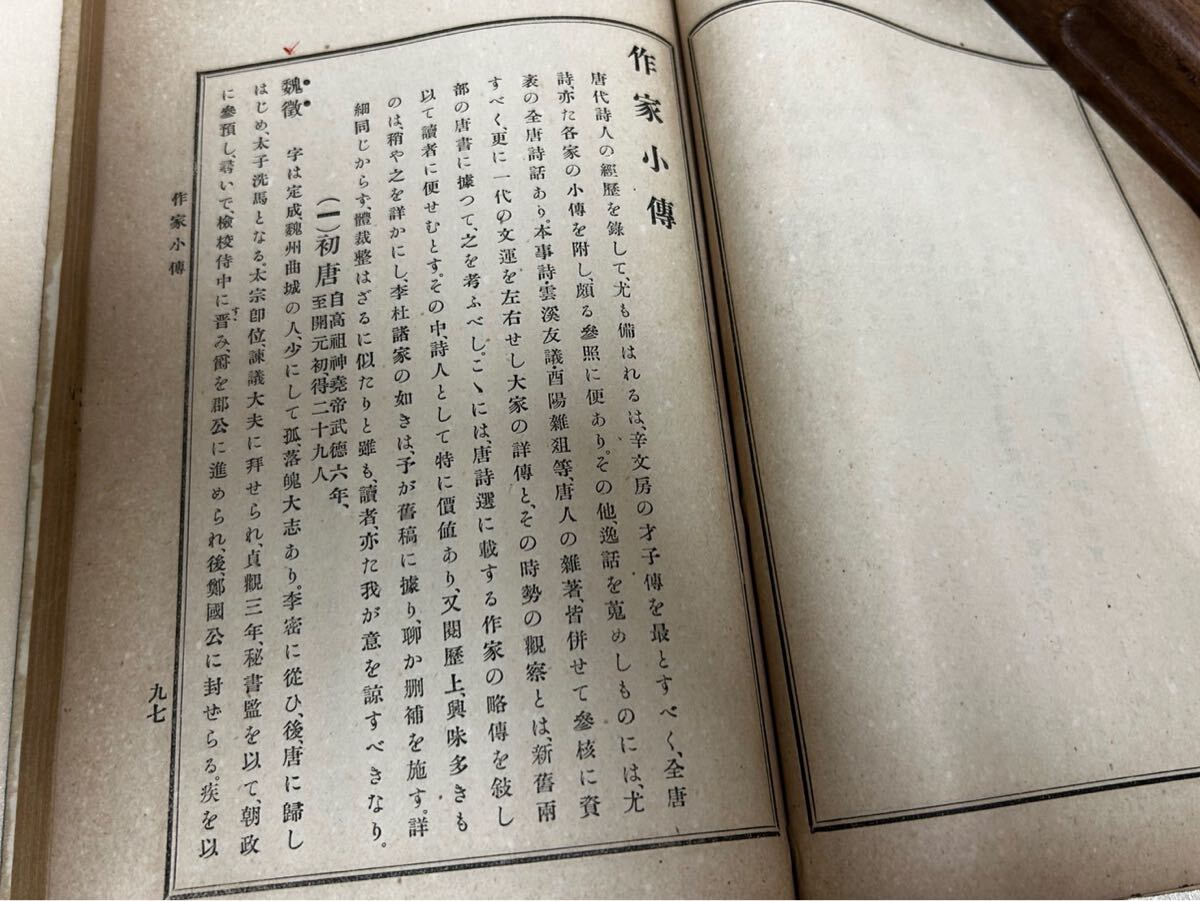 作家小傳
唐代詩人の經歷を錄して、尤も備はれるは、辛文房の才子傳を最とすべく、全唐
詩、亦た各家の小傳を附し、頗る參照に便あり。その他、逸話を蒐めしものには、尤
袤の全唐詩話あり。本事詩・雲溪友議・酉陽雜俎等、唐人の雜著、皆併せて參核に資
すべく、更に一代の文運を左右せし大家の詳傳と、その時勢の觀察とは、新舊兩
部の唐書に據つて、之を考ふべし。こゝには、唐詩選に載する作家の略傳を敍し
以て讀者に便せむとす。その中、詩人として特に價値あり、又閱歷上、興味多きも
のは、稍や之を詳かにし、李杜諸家の如きは、予が舊稿に據り、聊か刪補を施す。詳
細同じからず、體裁整はざるに似たりと雖も、讀者、亦た我が意を諒すべきなり。
(一)初唐 自高祖神堯帝武德六年、
至開元初、得二十九人
魏徵 字は定成、魏州曲城の人、少にして孤、落魄大志あり。李密に從ひ、後、唐に歸し
はじめ、太子洗馬となる。太宗卽位、諫議大夫に拜せられ、貞觀三年、秘書監を以て、朝政
に參預し、尋いで、檢校侍中に晋み、爵を郡公に進められ、後、鄭國公に封ぜらる。疾を以
す
作家小傳
九七